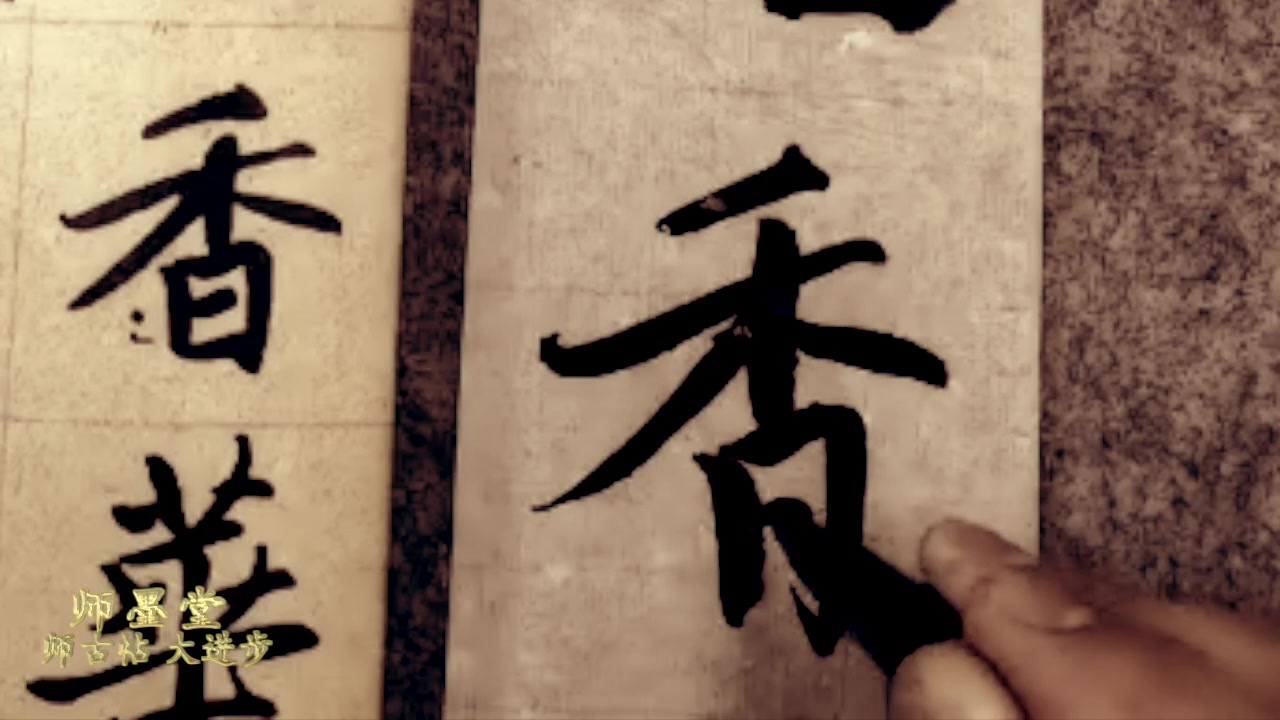 香
華
香
师墨堂
师古帖 大进步